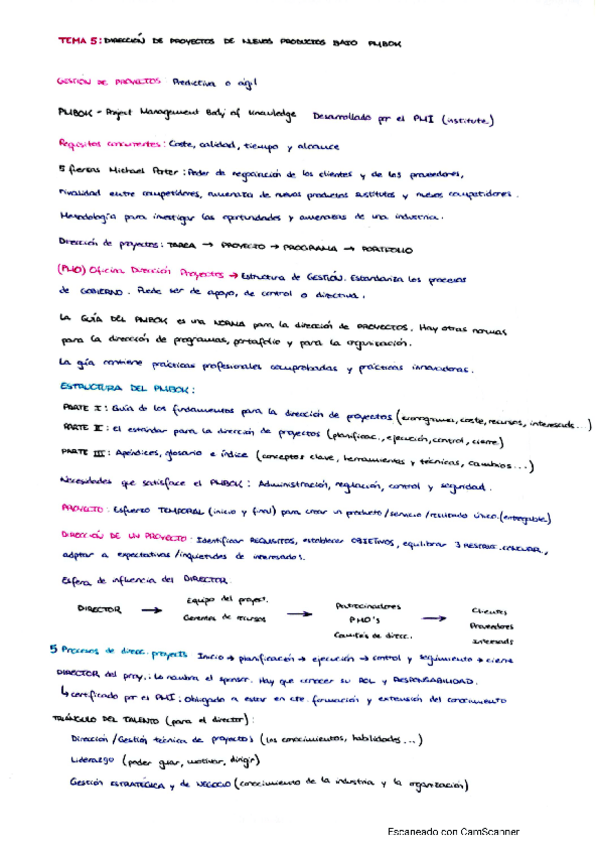 TEMA 5: DIRECCIÓN DE PROYECTOS DE NUEVOS PRODUCTOS BAJO PMBOK
GESTIÓN DE PROYECTOS Predictiva o ágil
PMBOK - Project Management Body of knowledge Desarrollado por el PMI (institute)
Requisitos concurrentes: Coste, calidad, tiempo y alcance
5 fuerzas Michael Porter: Poder de negociación de los clientes y de los proveedores,
rivalidad entre competidores, amenaza de nuevos productos sustitutos y nuevos competidores.
Metodología para investigar las oportunidades y amenazas de una industria.
Dirección de proyectos: TAREA → PROYECTO → PROGRAMA → PORTFOLIO
(PMO) Oficina Dirección Proyectos → Estructura de GESTIÓN. Estandariza los procesos
de GOBIERNO. Puede ser de apoyo, de control o directiva.
LA GUÍA DEL PMBOK es una NORMA para la dirección de PROYECTOS. Hay otras normas
para la dirección de programas, portafolio y para la organización.
La guía contiene prácticas profesionales comprobadas y prácticas innovadoras.
ESTRUCTURA DEL PMBOK:
PARTE I: Guía de los fundamentos para la dirección de proyectos (cronogramas, coste, recursos, interesads...)
PARTE II: El estándar para la dirección de proyectos (planificac., ejecución, control, cierre)
PARTE III: Apéndices, glosario e índice (conceptos clave, herramientas y técnicas, cambios...)
Necesidades que satisface el PMBOK: Administración, regulación, control y seguridad.
PROYECTO: Esfuerzo TEMPORAL (inicio y final) para crear un producto/servicio/resultado único. (entregable)
DIRECCIÓN DE UN PROYECTO: Identificar REQUISITOS, establecer OBJETIVOS, equilibrar 3 RESTRIC.
adaptar a expectativas/inquietudes de interesados.
Esfera de influencia del DIRECTOR
DIRECTOR → Equipo del proyect. Gerentes de recursos → Patrocinadores PMO's Comités de direcc. → Clientes Proveedores Interesads
5 Procesos de direcc. proyects Inicio → planificación → ejecución → control y seguimiento → cierre
DIRECTOR del proy.: Lo nombra el sponsor. Hay que conocer su ROL y RESPONSABILIDAD.
↳ certificado por el PMI: Obligado a estar en cte. formación y extensión del conocimiento
TRIÁNGULO DEL TALENTO (para el director):
Dirección/Gestión técnica de proyectos (los conocimientos, habilidades...)
Liderazgo (poder guiar, motivar, dirigir)
Gestión ESTRATÉGICA y de NEGOCIO (conocimiento de la industria y la organización)
Escaneado con CamScanner